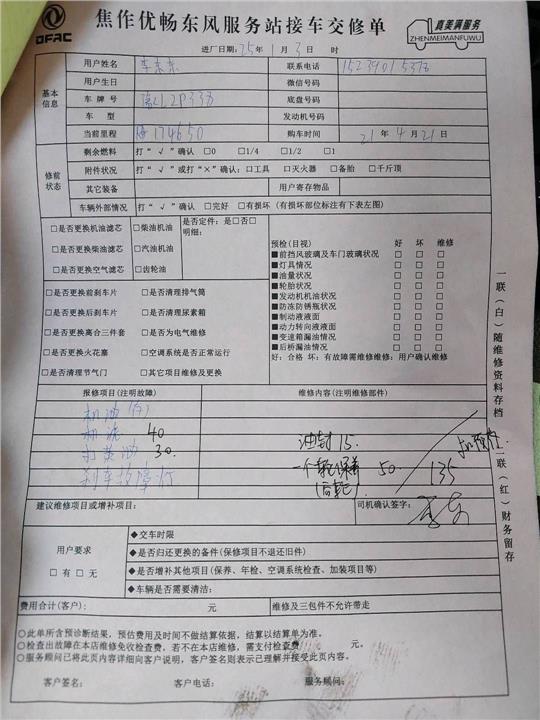 DFAC
焦作优畅东风服务站接车交修单
真美满服务
ZHENMEIMANFUWU
进厂日期: 25年 1月 3日 时
基本信息
用户姓名 李东东 联系电话
用户生日 微信号码
车牌号 底盘号码
车型 发动机号码
当前里程 174650 购车时间 21年4月21日
修前状态
剩余燃料 打“√”确认 □0 □1/4 □1/2 □1
附件状况 打“√”或打“×”确认: □工具 □灭火器 □备胎 □千斤顶
其它装备 用户寄存物品
车辆外部情况 打“√”确认 □完好 □有损坏 (有损坏部位标注有下表左图)
□是否更换机油滤芯 □柴油机油 是否定件: 是□否□
明细:
□是否更换柴油滤芯 □汽油机油
□是否更换空气滤芯 □齿轮油
预检(目视) 好 坏 维修
■前挡风玻璃及车门玻璃状况 □ □ □
■灯具情况 □ □ □
■油量状况 □ □ □
■轮胎状况 □ □ □
■发动机机油状况 □ □ □
■防冻防锈瓶状况 □ □ □
■制动液液面 □ □ □
■动力转向液液面 □ □ □
■变速箱漏油情况 □ □ □
■后桥漏油情况 □ □ □
好: 合格 坏: 有故障需维修维修: 用户确认维修
□是否更换前刹车片 □是否清理排气筒
□是否更换后刹车片 □是否清理尿素箱
□是否更换离合三件套 □是否为电气维修
□是否更换火花塞 □空调系统是否正常运行
□是否清理节气门 □其它项目维修及更换
报修项目(注明故障) 维修内容(注明维修部件)
机油
机滤 40
30.
刹车故障灯
油封 15.
一个轮保养 50
(后轮)
135
建议维修项目或增补项目: 司机确认签字:
用户要求
□有 □无
◆交车时限
◆是否归还更换的备件(保修项目不退还旧件)
◆是否增补其他项目(保养、年检、空调系统检查、加装项目等)
◆车辆是否需要清洁:
费用合计(客户): 元 维修及三包件不允许带走
○此单所含预诊断结果,预估费用及时间不做结算依据,结算以结算单为准。
○检查出故障在本店维修免收检查费,若不在本店维修,需支付检查费 元。
○服务顾问已将此页内容详细向客户说明,客户签名则表示已理解并接受此页内容。
客户签名: 客户电话: 服务顾问:
一联(白)随维修资料存档
一联(红)财务留存